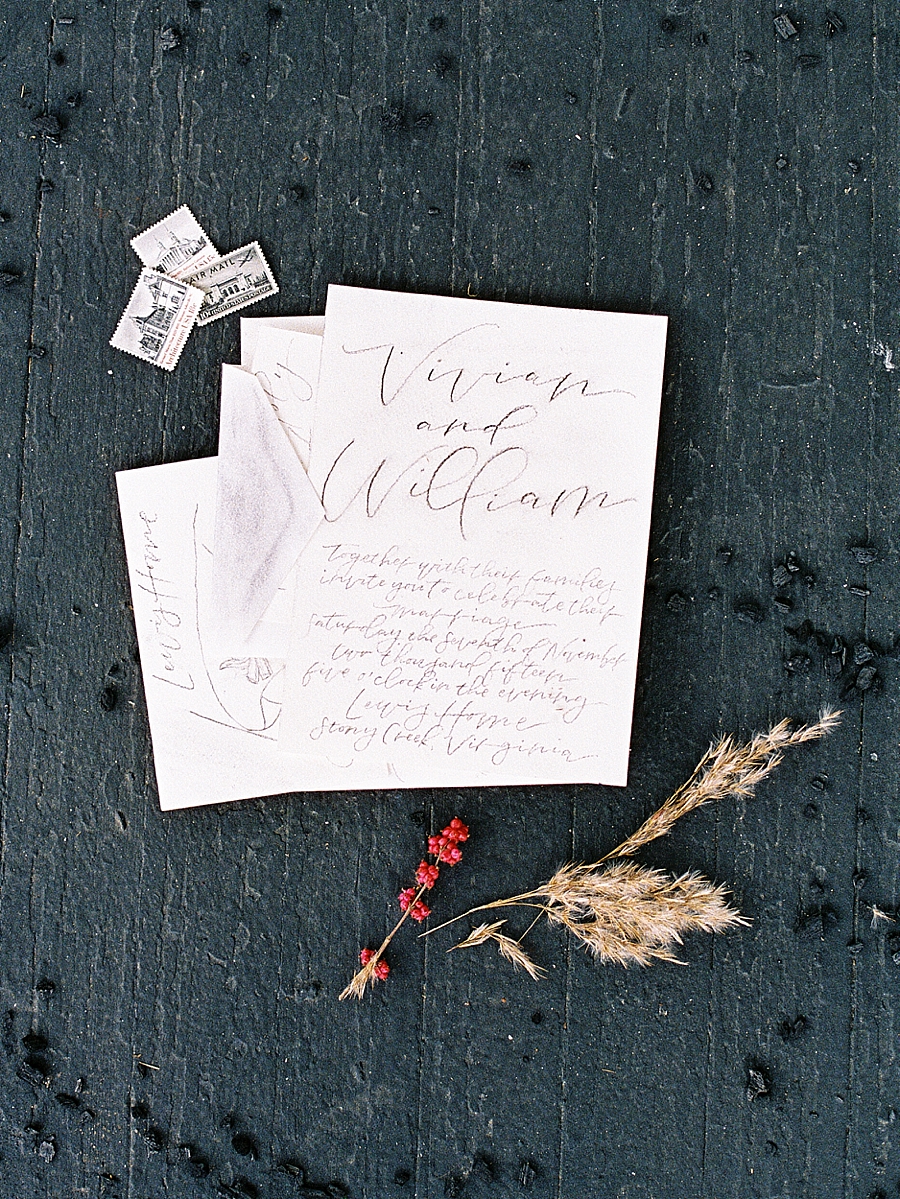 AIR MAIL
UNITED STATES POSTAGE
Vivian
and
William
Together with their families
invite you to celebrate their
marriage
saturday the seventh of November
two thousand fifteen
five o'clock in the evening
Lewis Home
Stony Creek, Virginia
Lewis Home